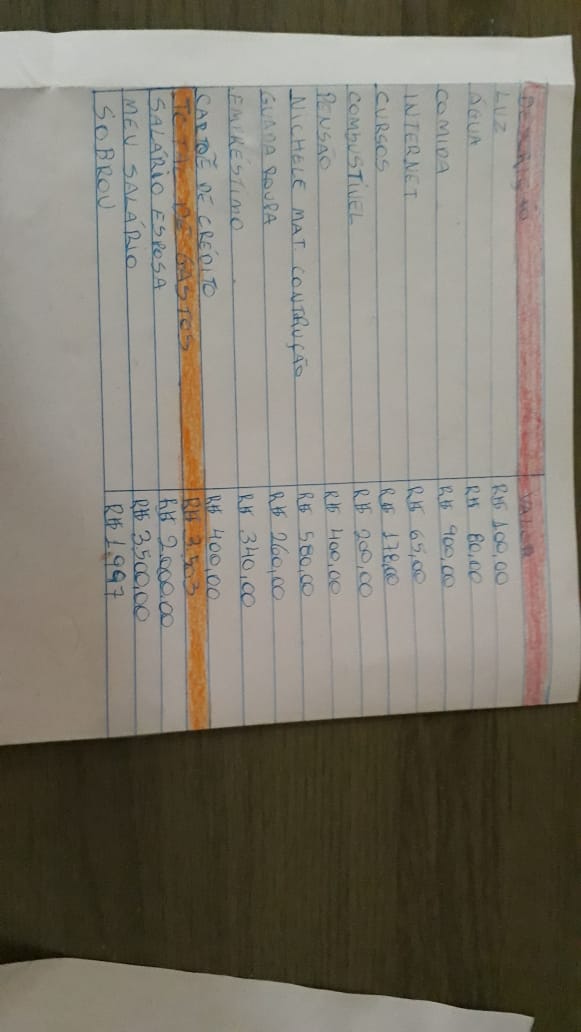 DESCRIÇÃO VALOR
LUZ R$ 100,00
ÁGUA R$ 80,00
COMIDA R$ 900,00
INTERNET R$ 65,00
CURSOS R$ 178,00
COMBUSTÍVEL R$ 200,00
PENSÃO R$ 400,00
NICHELE MAT CONTRUÇÃO R$ 580,00
GUADA ROUPA R$ 260,00
EMPRESTIMO R$ 340,00
CARTÕE DE CRÉDITO R$ 400,00
TOTAL DE GASTOS R$ 3.503
SALÁRIO ESPOSA R$ 2.000,00
MEU SALÁRIO R$ 3.500,00
SOBROU R$ 1.997